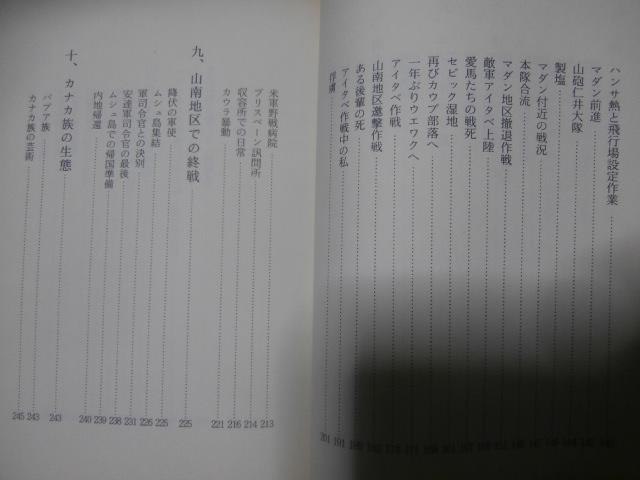 ハンサ熱と飛行場設定作業
マダン前進
山砲仁井大隊
製塩
マダン付近の戦況
本隊合流
マダン地区撤退作戦
敵軍アイタペ上陸
愛馬たちの戦死
セピック湿地
再びカウプ部落へ
一年ぶりウエワクへ
アイタペ作戦
山南地区邀撃作戦
ある後輩の死
アイタペ作戦中の私 191
俘虜 201
米軍野戦病院 213
ブリスベーン訊問所 214
収容所での日常 216
カウラ暴動 221
九、山南地区での終戦 225
降伏の軍使 225
ムシュ島集結 226
軍司令官との決別 231
安達軍司令官の最後 238
ムシュ島での帰国準備 239
内地帰還 240
十、カナカ族の生態 243
パプア族 243
カナカ族の芸術 245